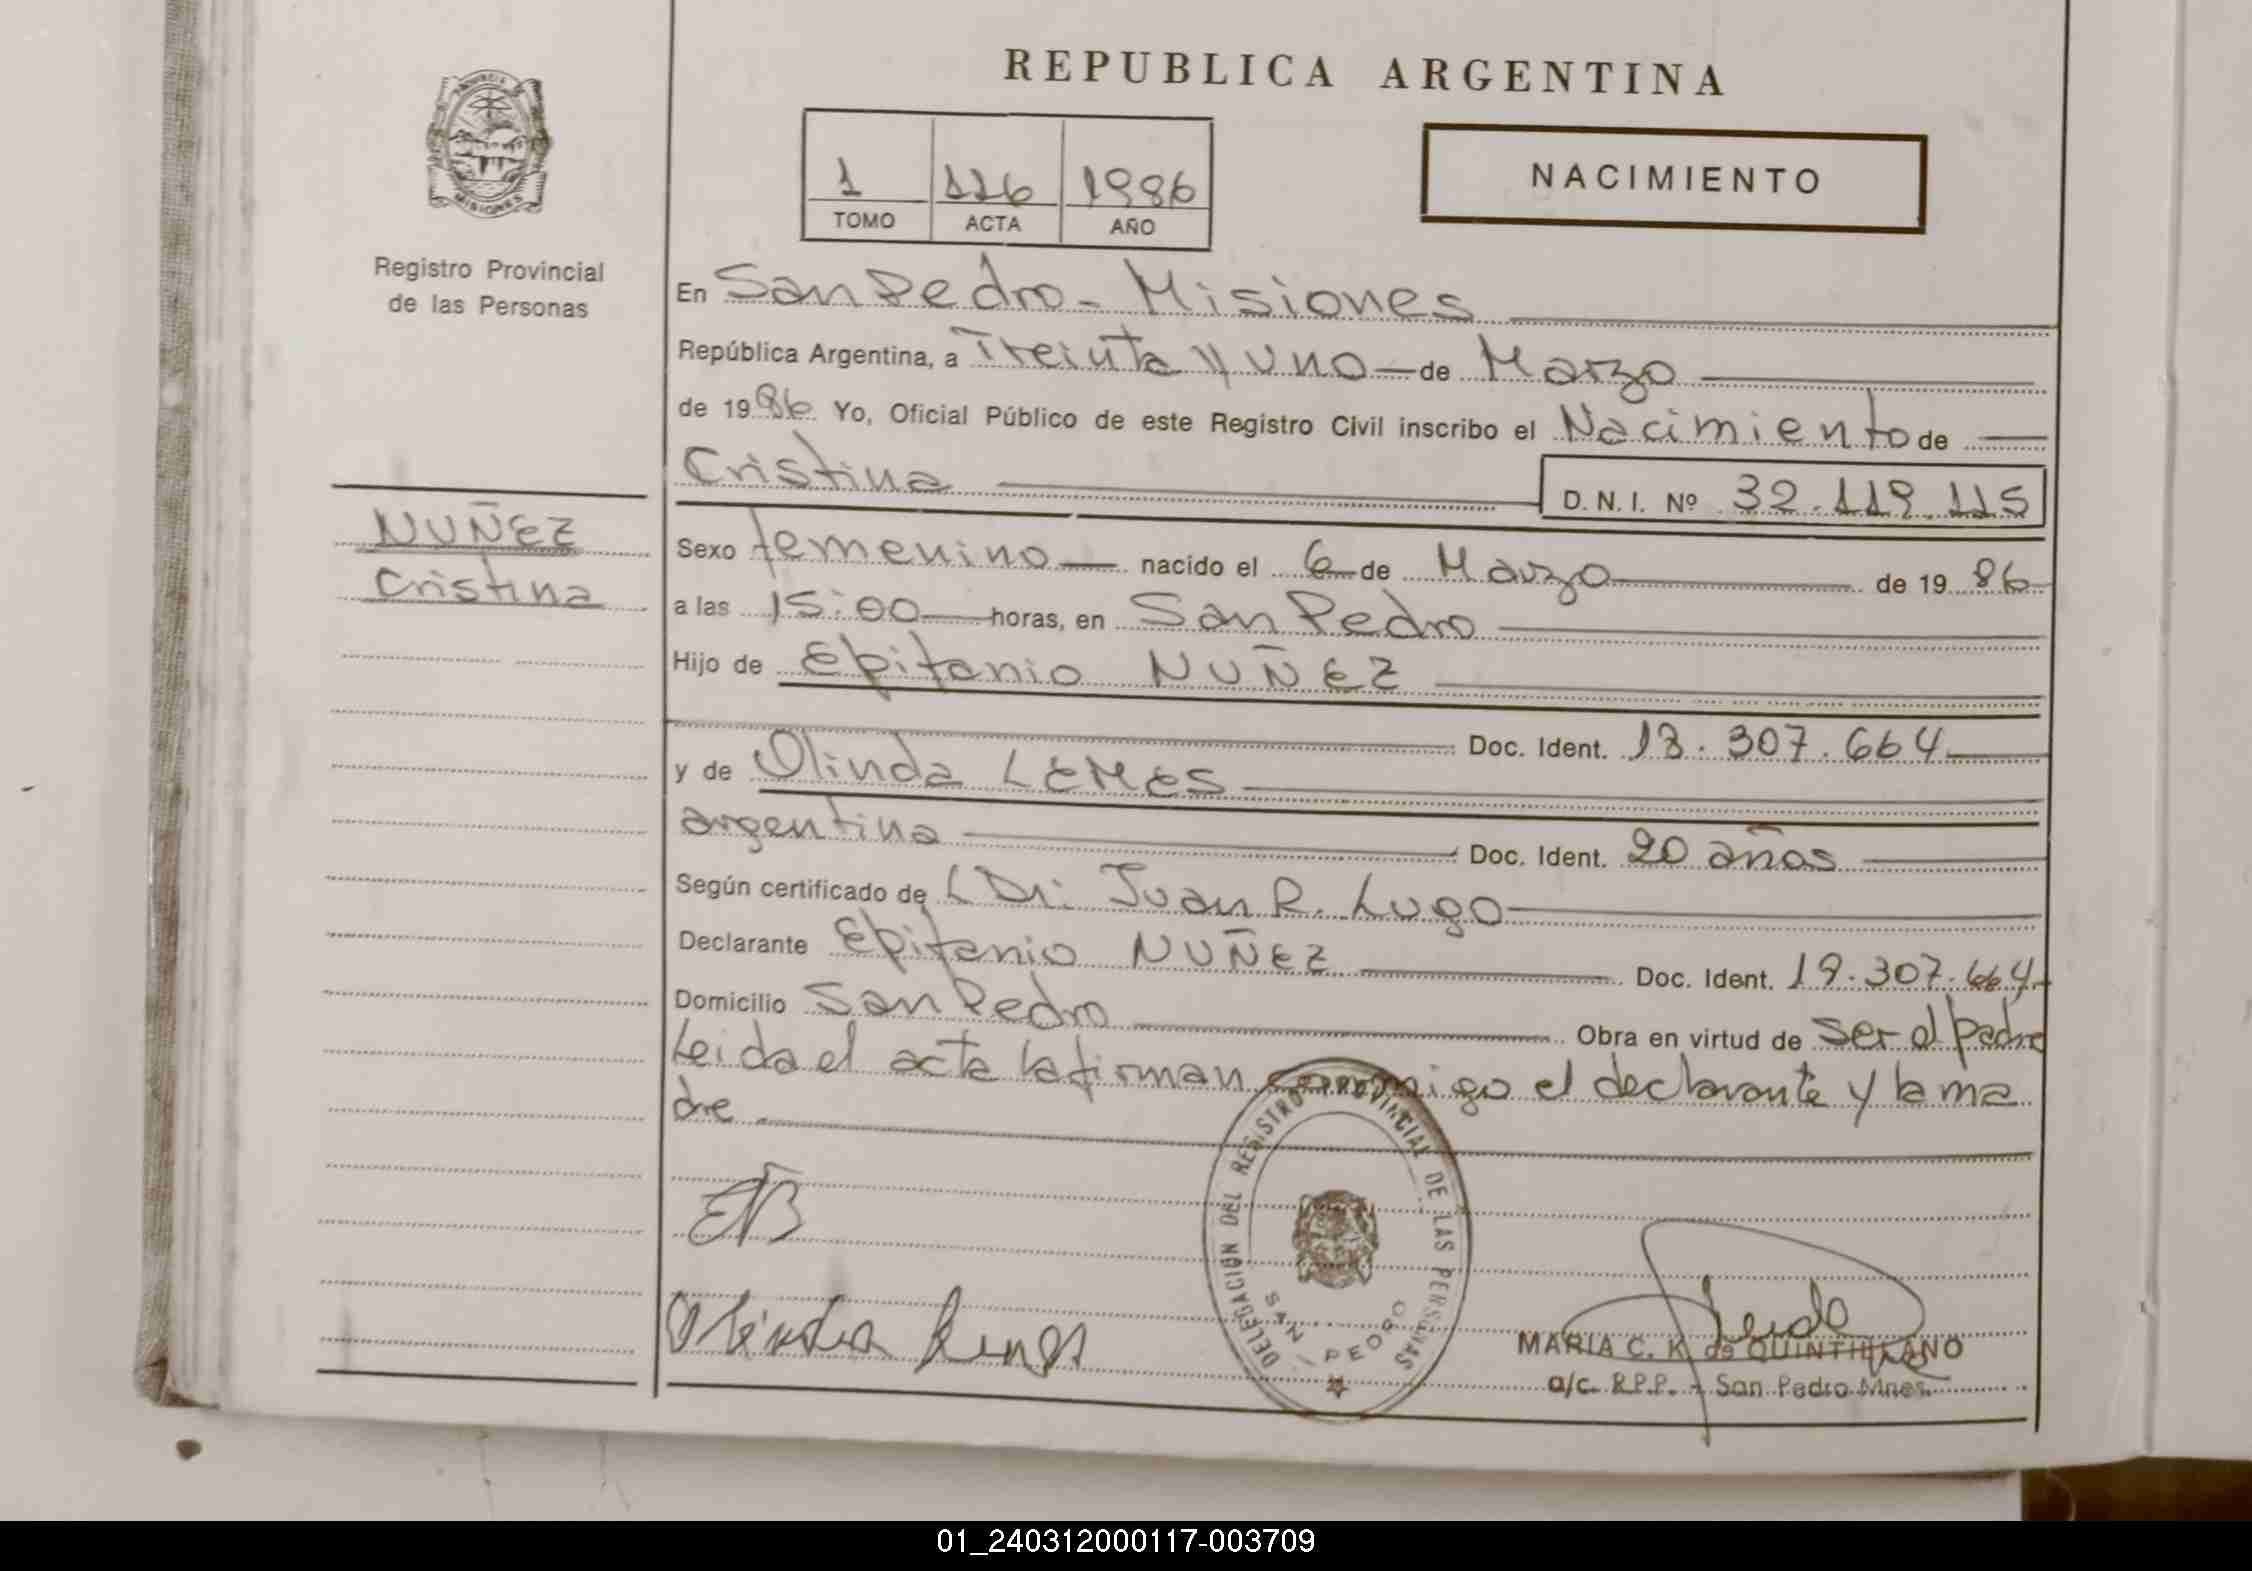 REPUBLICA ARGENTINA
PROVINCIA DE
MISIONES
Registro Provincial
de las Personas
1 116 1986
TOMO ACTA AÑO
NACIMIENTO
En San Pedro - Misiones
República Argentina, a Treinta y uno de Marzo
de 1986 Yo, Oficial Público de este Registro Civil inscribo el Nacimiento de
Cristina D.N.I. Nº 32.119.115
NUÑEZ
Cristina
Sexo femenino nacido el 6 de Marzo de 1986
a las 15:00 horas, en San Pedro
Hijo de Epifanio NUÑEZ
Doc. Ident. 18.307.664
y de Olinda LEMES
argentina Doc. Ident. 20 años
Según certificado de L Dr: Juan R. Lugo
Declarante Epifanio NUÑEZ Doc. Ident. 19.307.664
Domicilio San Pedro Obra en virtud de ser el padre
Leida el acta la firman conmigo el declarante y la ma
dre
DELEGACION DEL REGISTRO PROVINCIAL DE LAS PERSONAS
SAN PEDRO
MARIA C. K. de QUINTILIANO
a/c. R.P.P. - San Pedro Mnes.
01_240312000117-003709